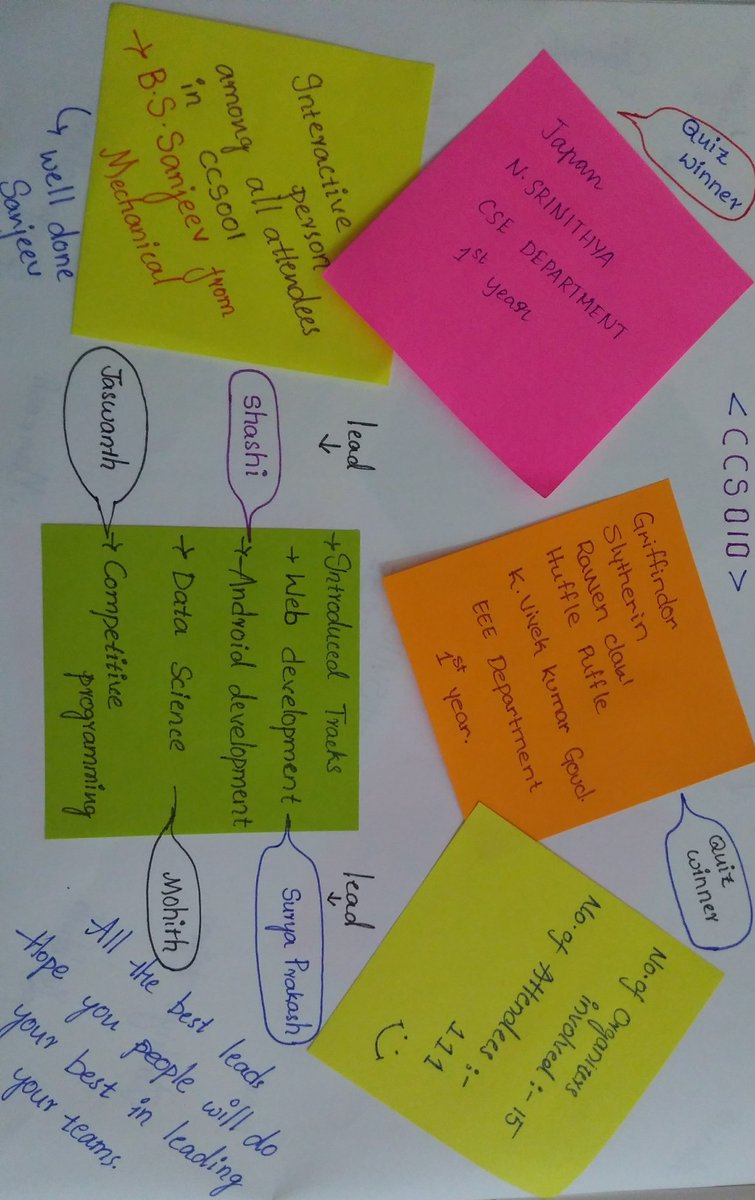 <CCS010>
Quiz
winner
Japan
N. SRINITHYA
CSE DEPARTMENT
1st year
Interactive
person
among all attendees
in CCS001
→ B.S. Sanjeev from
Mechanical
↳ well done
Sanjeev
Griffindor
Slytherin
Raven claw
Huffle Puffle
K. Vivek Kumar Goud.
EEE Department
1st year.
Quiz
winner
No. of Organizers
involved :- 15
No. of Attendees :-
111
lead
↓
Shashi
Jaswanth
→ Introduced Tracks
→ Web development
→ Android development
→ Data Science
→ Competitive
programming
lead
↓
Surya Prakash
Mohith
All the best leads
Hope you people will do
your best in leading
your teams.